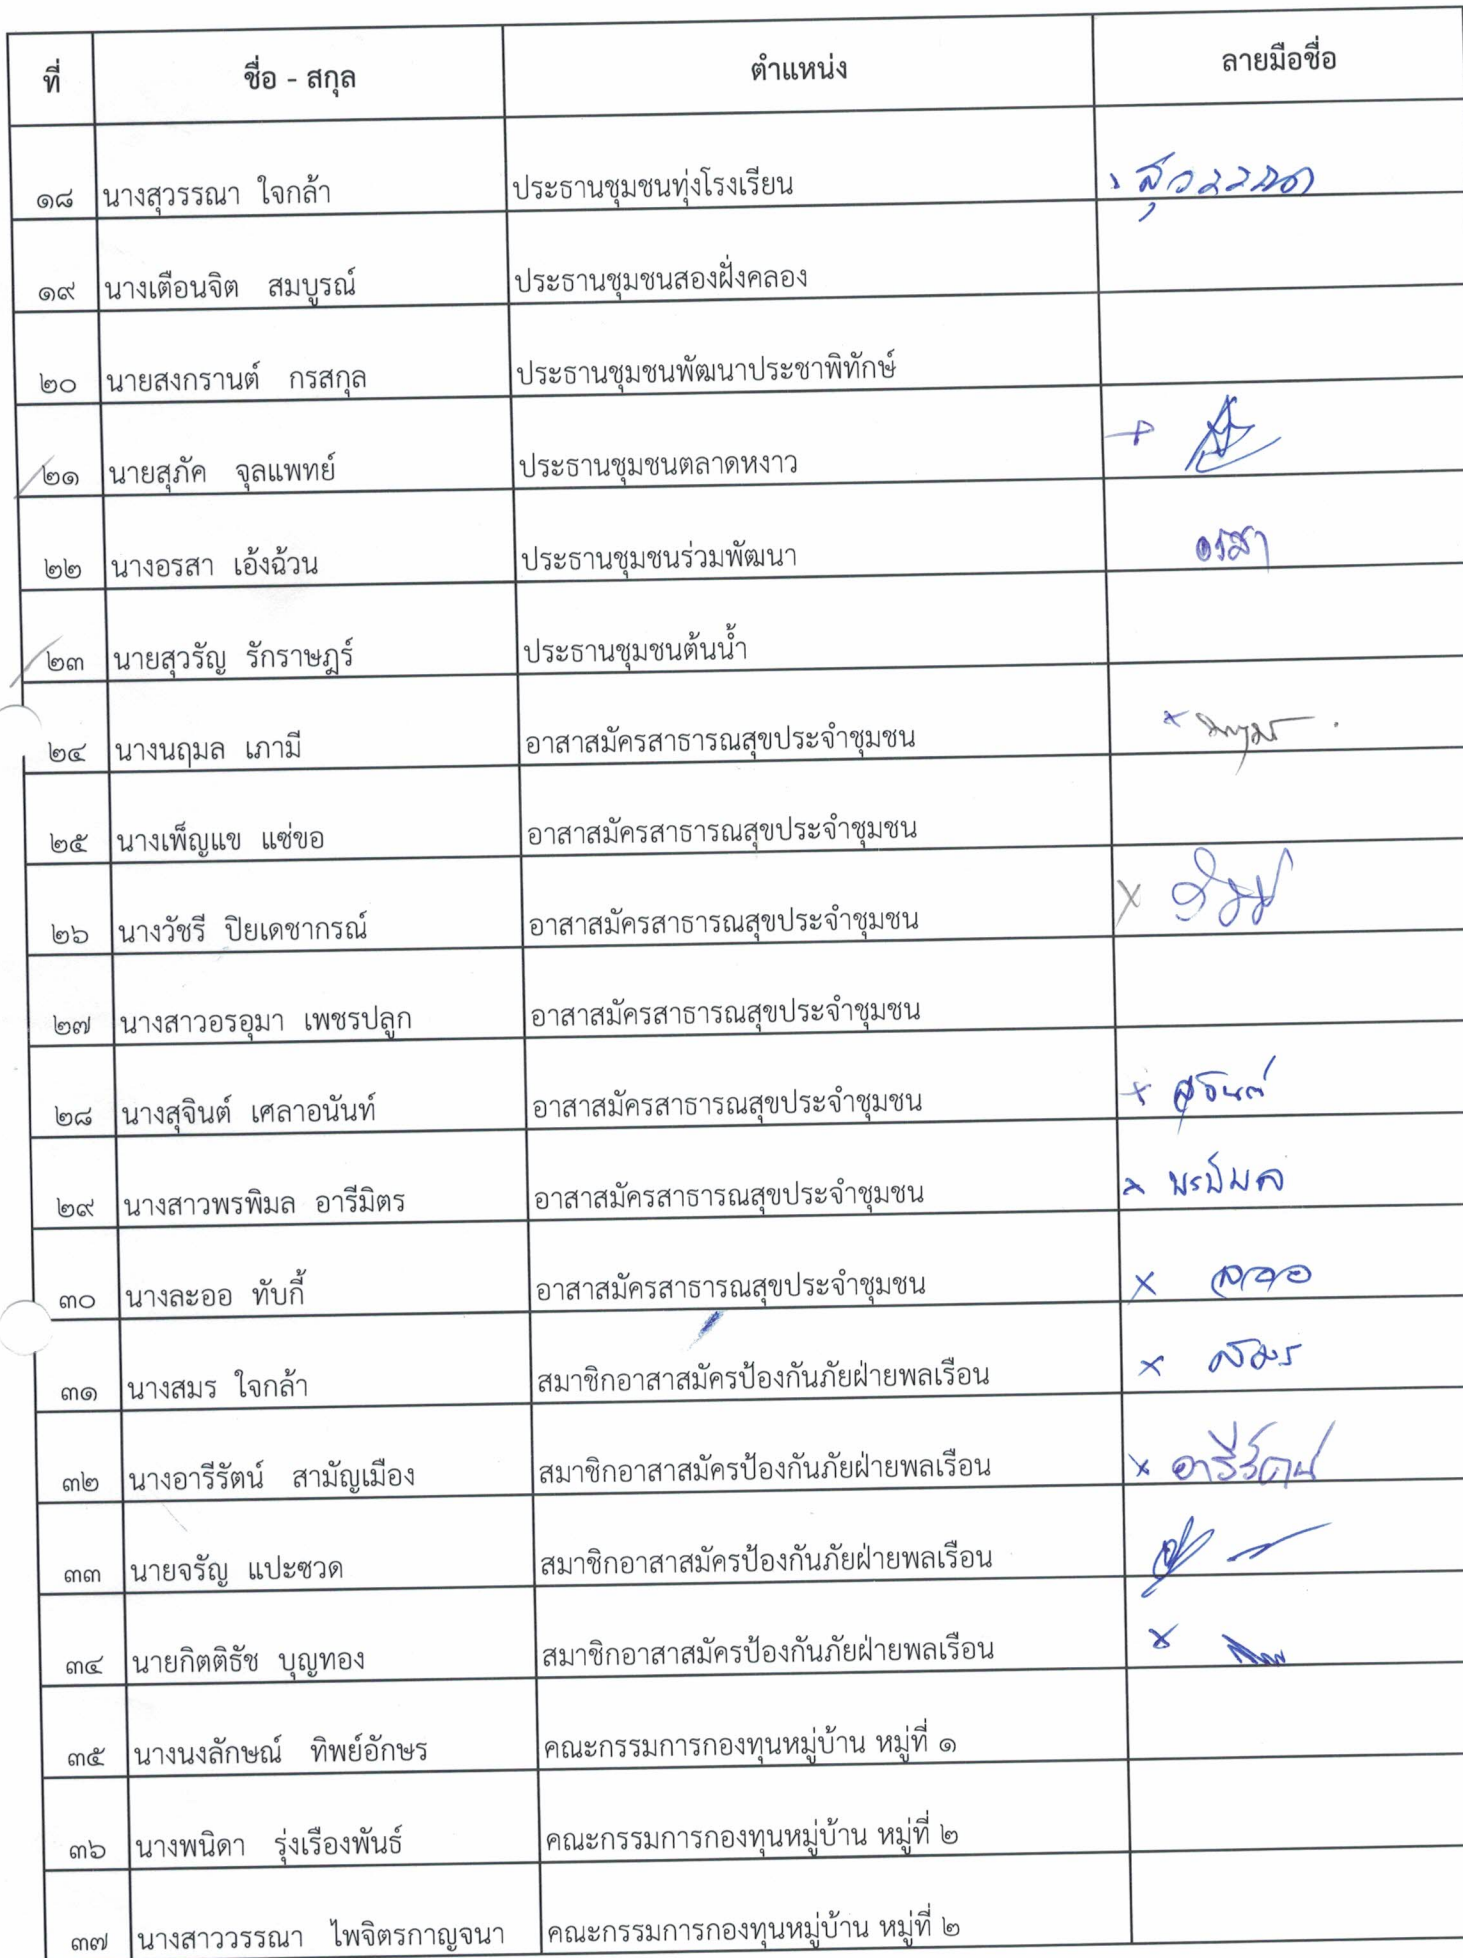 ที่ ชื่อ - สกุล ตำแหน่ง ลายมือชื่อ
๑๘ นางสุวรรณา ใจกล้า ประธานชุมชนทุ่งโรงเรียน สุวรรณา
๑๙ นางเตือนจิต สมบูรณ์ ประธานชุมชนสองฝั่งคลอง
๒๐ นายสงกรานต์ กรสกุล ประธานชุมชนพัฒนาประชาพิทักษ์
๒๑ นายสุภัค จุลแพทย์ ประธานชุมชนตลาดหงาว
๒๒ นางอรสา เอ้งฉ้วน ประธานชุมชนร่วมพัฒนา อรสา
๒๓ นายสุวรัญ รักราษฎร์ ประธานชุมชนต้นน้ำ
๒๔ นางนฤมล เภามี อาสาสมัครสาธารณสุขประจำชุมชน
๒๕ นางเพ็ญแข แซ่ขอ อาสาสมัครสาธารณสุขประจำชุมชน
๒๖ นางวัชรี ปิยเดชากรณ์ อาสาสมัครสาธารณสุขประจำชุมชน
๒๗ นางสาวอรอุมา เพชรปลูก อาสาสมัครสาธารณสุขประจำชุมชน
๒๘ นางสุจินต์ เศลาอนันท์ อาสาสมัครสาธารณสุขประจำชุมชน สุจินต์
๒๙ นางสาวพรพิมล อารีมิตร อาสาสมัครสาธารณสุขประจำชุมชน พรพิมล
๓๐ นางละออ ทับกี้ อาสาสมัครสาธารณสุขประจำชุมชน ละออ
๓๑ นางสมร ใจกล้า สมาชิกอาสาสมัครป้องกันภัยฝ่ายพลเรือน สมร
๓๒ นางอารีรัตน์ สามัญเมือง สมาชิกอาสาสมัครป้องกันภัยฝ่ายพลเรือน อารีรัตน์
๓๓ นายจรัญ แปะซวด สมาชิกอาสาสมัครป้องกันภัยฝ่ายพลเรือน
๓๔ นายกิตติธัช บุญทอง สมาชิกอาสาสมัครป้องกันภัยฝ่ายพลเรือน
๓๕ นางนงลักษณ์ ทิพย์อักษร คณะกรรมการกองทุนหมู่บ้าน หมู่ที่ ๑
๓๖ นางพนิดา รุ่งเรืองพันธ์ คณะกรรมการกองทุนหมู่บ้าน หมู่ที่ ๒
๓๗ นางสาววรรณา ไพจิตรกาญจนา คณะกรรมการกองทุนหมู่บ้าน หมู่ที่ ๒